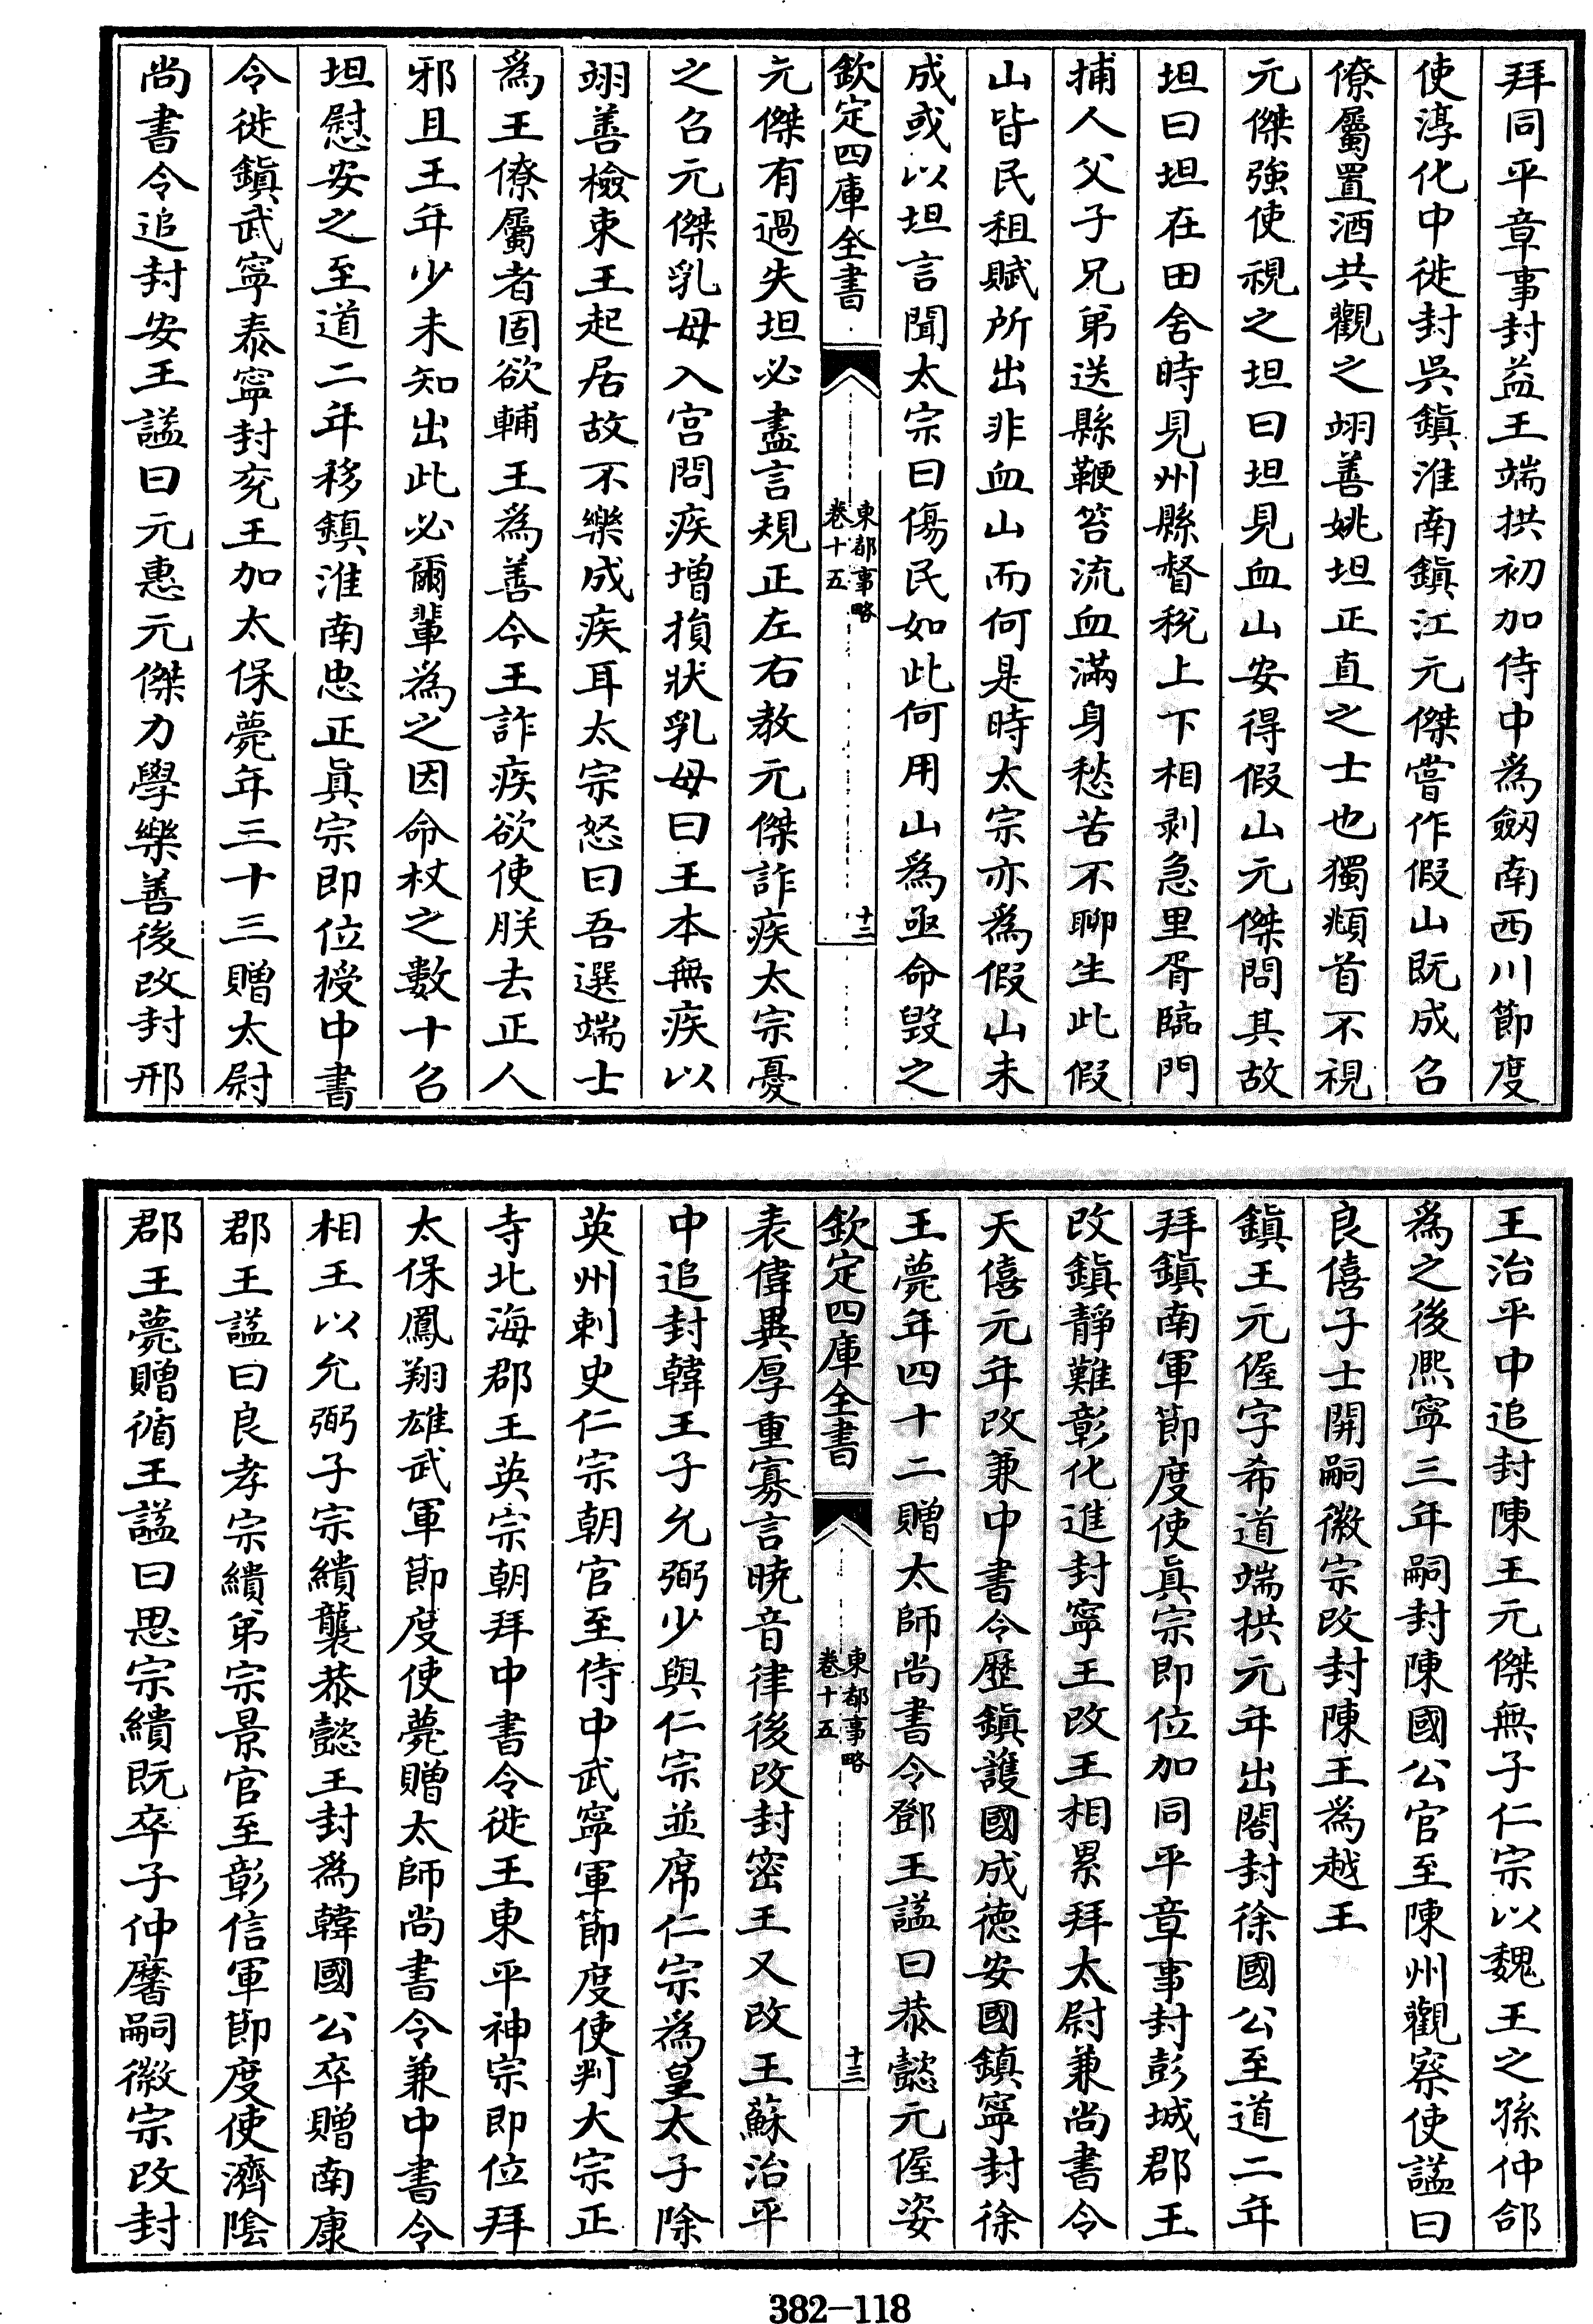 拜同平章事封益王端拱初加侍中為劔南西川節度
使淳化中徙封吳鎮淮南鎮江元傑嘗作假山既成召
僚屬置酒共觀之翊善姚坦正直之士也獨頫首不視
元傑強使視之坦曰坦見血山安得假山元傑問其故
坦曰坦在田舍時見州縣督稅上下相剥急里胥臨門
捕人父子兄弟送縣鞭笞流血滿身愁苦不聊生此假
山皆民租賦所出非血山而何是時太宗亦為假山未
成或以坦言聞太宗曰傷民如此何用山為亟命毁之
欽定四庫全書
東都事略
卷十五
十二
元傑有過失坦必盡言規正左右教元傑詐疾太宗憂
之召元傑乳母入宮問疾增損狀乳母曰王本無疾以
翊善檢束王起居故不樂成疾耳太宗怒曰吾選端士
為王僚屬者固欲輔王為善今王詐疾欲使朕去正人
邪且王年少未知出此必爾輩為之因命杖之數十召
坦慰安之至道二年移鎮淮南忠正真宗即位授中書
令徙鎮武寧泰寧封兖王加太保薨年三十三贈太尉
尚書令追封安王諡曰元惠元傑力學樂善後改封邢
王治平中追封陳王元傑無子仁宗以魏王之孫仲郃
為之後熙寧三年嗣封陳國公官至陳州觀察使諡曰
良僖子士開嗣徽宗改封陳王為越王
鎮王元偓字希道端拱元年出閤封徐國公至道二年
拜鎮南軍節度使真宗即位加同平章事封彭城郡王
改鎮靜難彰化進封寧王改王相累拜太尉兼尚書令
天僖元年改兼中書令歷鎮護國成德安國鎮寧封徐
王薨年四十二贈太師尚書令鄧王諡曰恭懿元偓姿
欽定四庫全書
東都事略
卷十五
十三
表偉異厚重寡言曉音律後改封密王又改王蘇治平
中追封韓王子允弼少與仁宗並席仁宗為皇太子除
英州刺史仁宗朝官至侍中武寧軍節度使判大宗正
寺北海郡王英宗朝拜中書令徙王東平神宗即位拜
太保鳳翔雄武軍節度使薨贈太師尚書令兼中書令
相王以允弼子宗繢襲恭懿王封為韓國公卒贈南康
郡王諡曰良孝宗繢弟宗景官至彰信軍節度使濟陰
郡王薨贈循王諡曰思宗繢既卒子仲䅽嗣徽宗改封
382-118